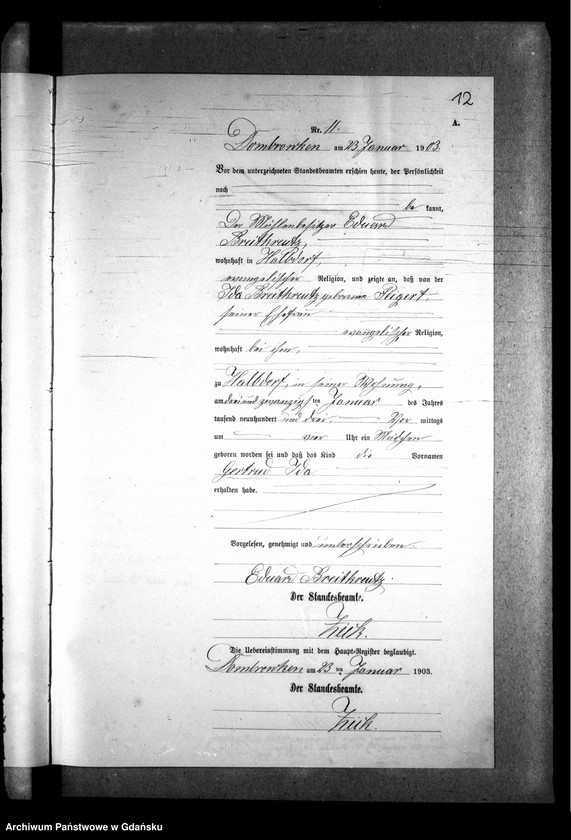 12
A.
Nr. 11.
Dombrowken am 23 Januar 1903.
Vor dem unterzeichneten Standesbeamten erschien heute, der Persönlichkeit
nach
be kannt,
Der Mühlenbesitzer Eduard
Breitkreutz,
wohnhaft in Halbdorf,
evangelischer Religion, und zeigte an, daß von der
Ida Breitkreutz geborene
seiner Ehefrau
evangelischer Religion,
wohnhaft bei ihm,
zu Halbdorf, in seiner Wohnung,
am drei und zwanzigsten Januar des Jahres
tausend neunhundert und drei, Vor mittags
um vier Uhr ein Mädchen
geboren worden sei und daß das Kind die Vornamen
Gertrud Ida
erhalten habe.
Vorgelesen, genehmigt und unterschrieben
Eduard Breitkreutz.
Der Standesbeamte.
Zick.
Die Uebereinstimmung mit dem Haupt-Register beglaubigt.
Dombrowken am 23ten Januar 1903.
Der Standesbeamte.
Zick.
Archiwum Państwowe w Gdańsku